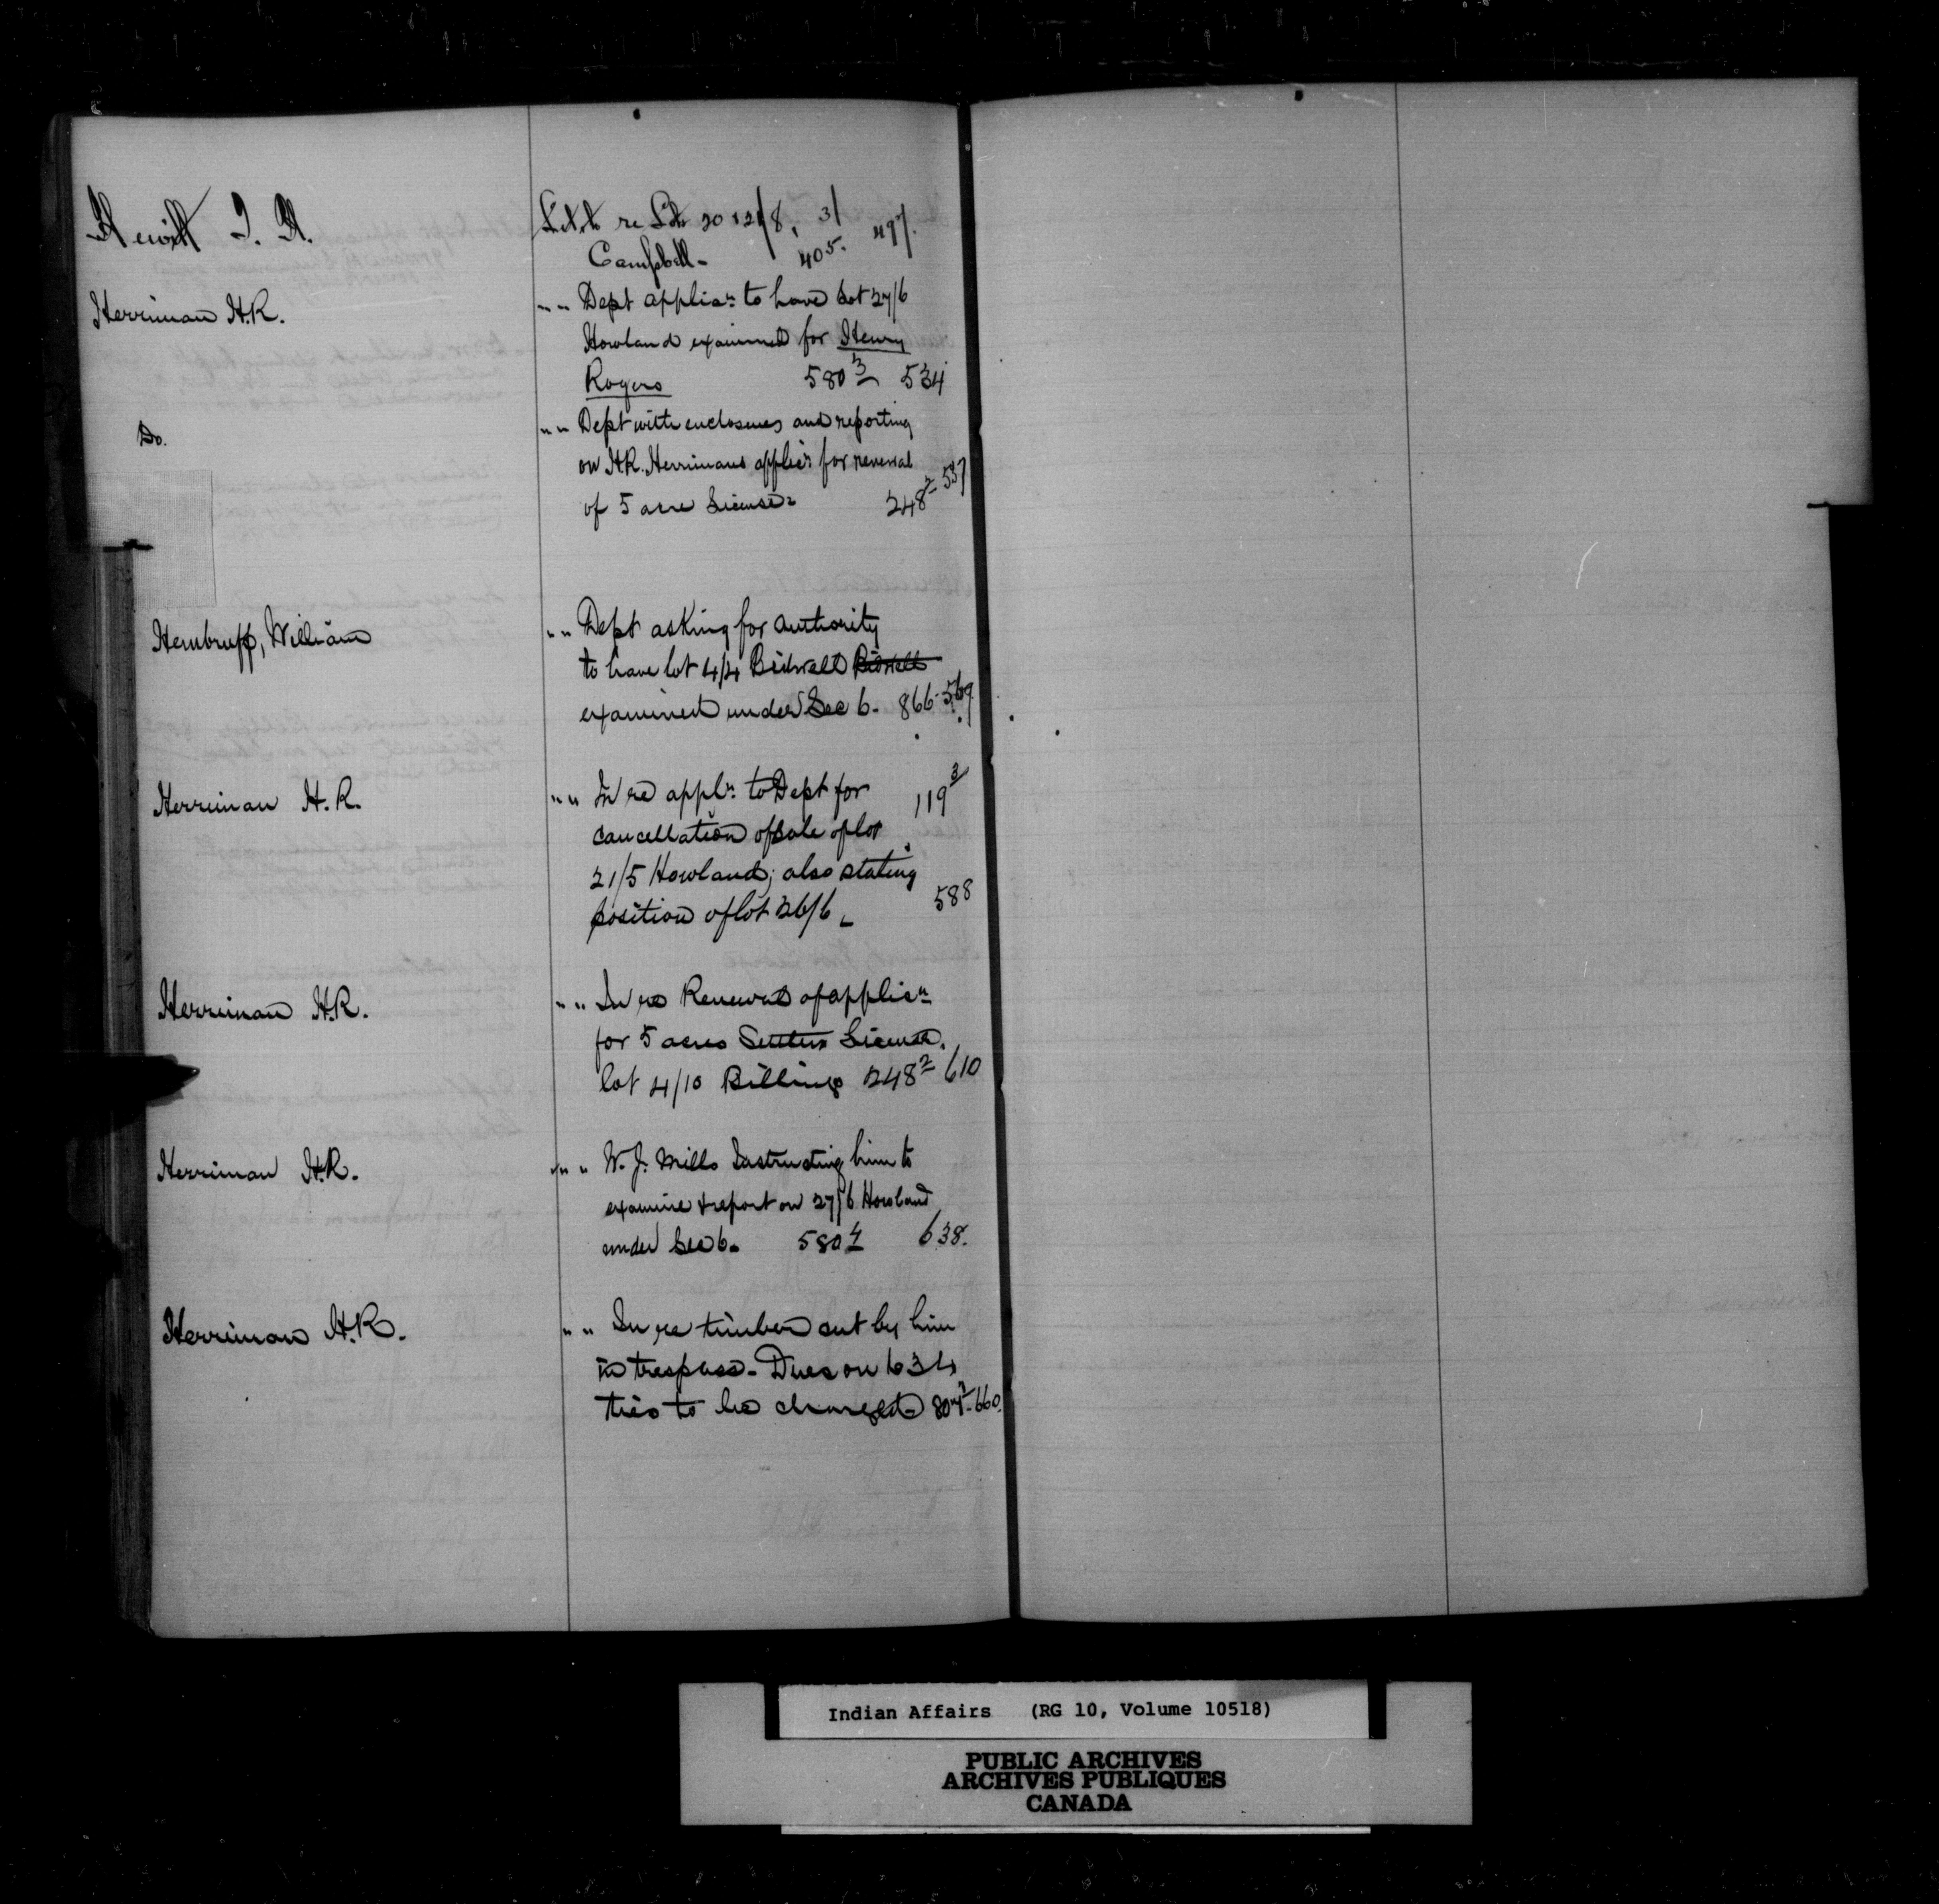 Hewitt T. H. Let. to re Lots 20 & 21/8, 3/
Campbell - 405. 497.
Herriman H.R. " " Dept applian. to have Lot 27/6
Howland examined for Henry
Rogers 580 3 534
Do. " " Dept with enclosures and reporting
on H.R. Herrimans applicn for renewal
of 5 acre License 248 2 537
Hembruff, William " " Dept asking for authority
to have lot 4/4 Bidwell Bidwell
examined under Sec 6. 866 - 569.
Herriman H. R. " " In re appln. to Dept for 119 3
cancellation of sale of lot
21/5 Howland; also stating
position of lot 26/6 588
Herriman H.R. " " In re Renewal of applicn
for 5 acres Settlers License.
lot 4/10 Billings 248 2 610
Herriman H.R. " " W. J. Mills Instructing him to
examine & report on 27/6 Howland
under Sec 6. 580 4 638.
Herriman H.R. " " In re timber cut by him
in trespass - Dues on 634
ties to be charged 804 2 - 660.
Indian Affairs (RG 10, Volume 10518)
PUBLIC ARCHIVES
ARCHIVES PUBLIQUES
CANADA